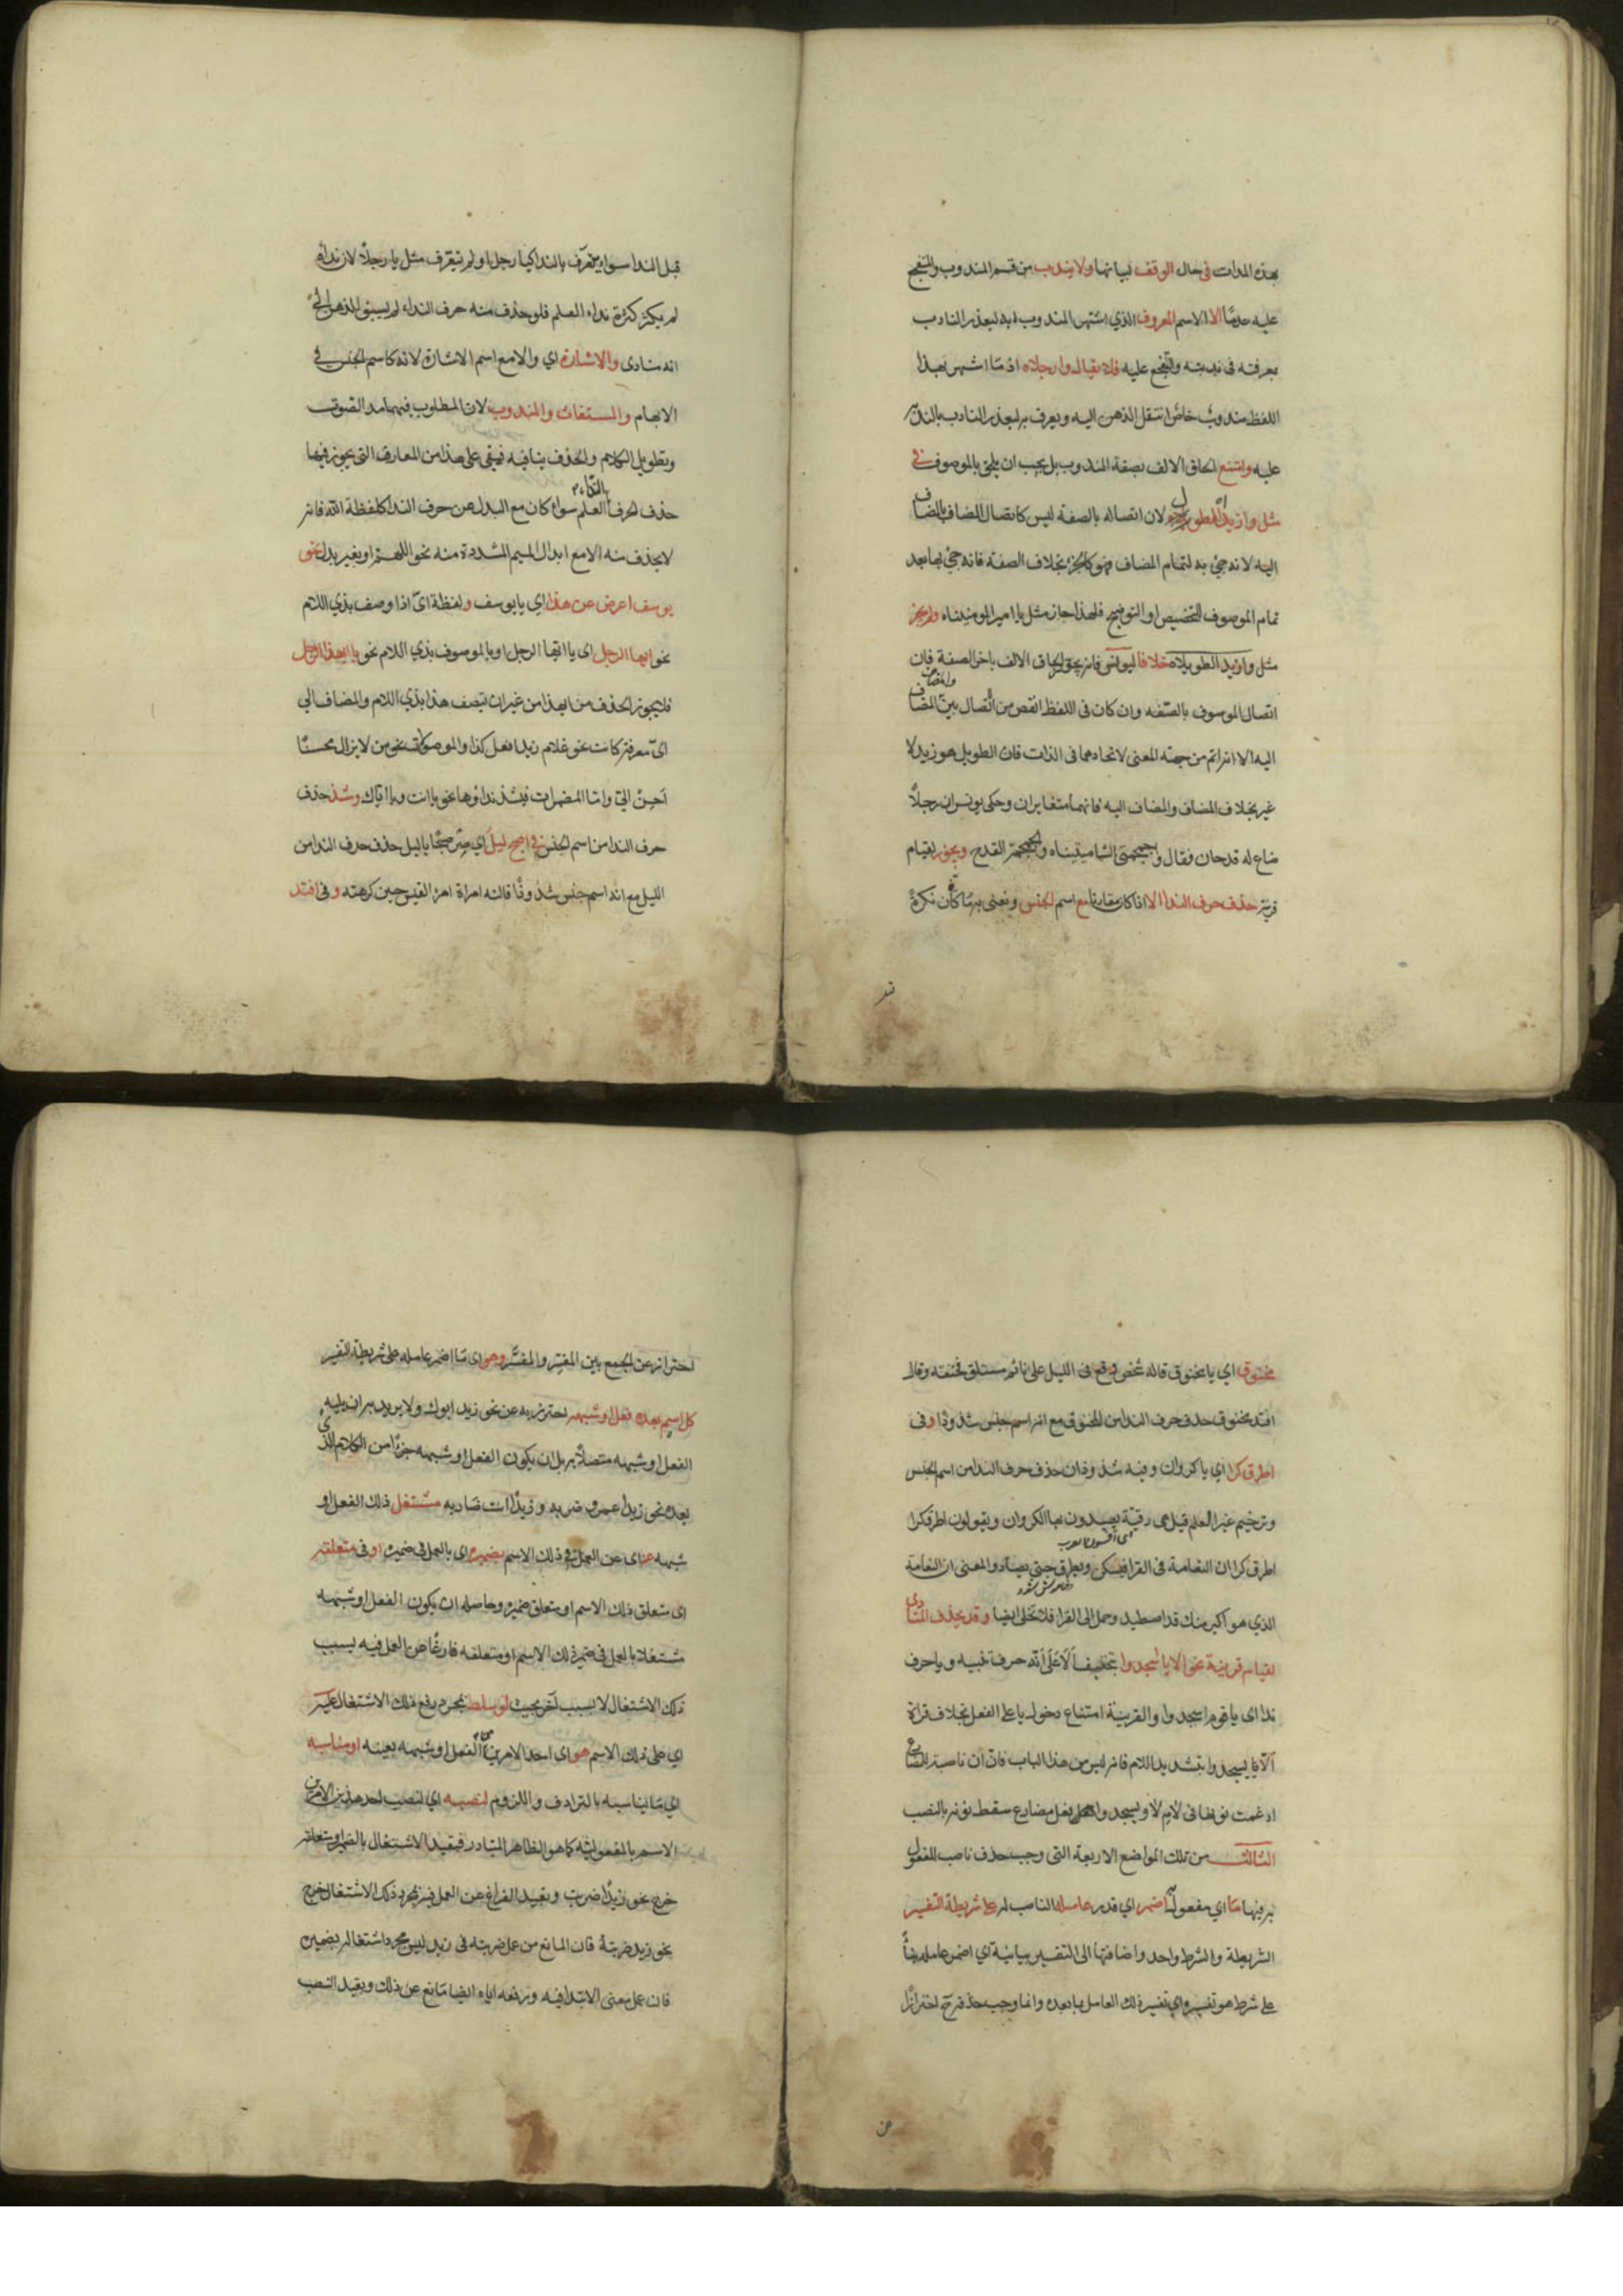 بهذه المدات فى حال الوقف لبيانها ولا يندب من قسم المندوب والمتفجع
عليه حدمًا الا الاسم المعروف الذي اشتهر المندوب به ليعذر النادب
بمعرفته فى ندبته والتفجع عليه فلا يقال وارجلاه اذ ما اشهر بهذا
اللفظ مندوب خاص انتقل الذهن اليه ويعرف به ليعذر النادب بالندبة
عليه وامتنع الحاق الالف بصفة المندوب بل يجب ان يلحق بالموصوف فى
مثل وازيد الطويلاه لان اتصاله بالصفة ليس كاتصال المضاف بالمضاف
اليه لانه جئ به لتمام المضاف فهو كالجزء بخلاف الصفة فانه جئ بها بعد
تمام الموصوف للتخصيص او التوضيح فلهذا جاز مثل يا امير المومنيناه ولم يجز
مثل وازيد الطويلاه خلافا ليونس فانه يجوز الحاق الالف باخر الصفة فان
اتصال الموسوف بالصفه وان كان فى اللفظ انقص من اتصال بين المضاف والمضاف
اليه الا انه اتم من جهته المعنى لاتحادهما فى الذات فان الطويل هو زيد لا
غير بخلاف المضاف والمضاف اليه فانهما متغايران وحكى يونس ان رجلاً
ضاع له قدحان فقال واجمجمتي الشاميتيناه والجمجمة القدح ويجوز لقيام
قرينة حذف حرف الندا الا اذا كان مقارنا مع اسم الجنس ونعنى به ما كان نكرة
قبل الندا سواء تعرف بالندا كيا رجل او لم يتعرف مثل يا رجلاً لان نداه
لم يكثر كثرة نداء العلم فلو حذف منه حرف النداء لم يسبق الذهن الى
انه منادى والاشارة اي والا مع اسم الاشارة لانه كاسم الجنس فى
الابهام والمستغاث والمندوب لان المطلوب فيهما مد الصوت
وتطويل الكلام والحذف ينافيه فبقى على هذا من المعارف التى يجوز فيها
حذف الحرف العلم سواء كان مع البدل عن حرف الندا كلفظة الله فانه
لا يحذف منه الا مع ابدال الميم المشددة منه نحو اللهم او بغير بدل نحو
يوسف اعرض عن هذا اي يا يوسف ولفظة اىّ اذا وصف بذي اللام
نحو ايها الرجل اى يا ايها الرجل او بالموصوف بذي اللام نحو يا ايهذا الرجل
فلا يجوز الحذف من ايهذا من غير ان يتصف هذا بذي اللام والمضاف الى
اىّ معرفة كانت نحو غلام زيد افعل كذا والموصولات نحو من لا يزال محسنًا
احسن الىّ واما المضمرات فيشذ نداؤها نحو يا انت ويا اياك وشذ حذف
حرف الندا من اسم الجنس في اصبح ليل اي صر صبحًا يا ليل حذف حرف الندا من
الليل مع انه اسم جنس شذوذًا قالته امراة امرء القيس حين كرهته وفى افتد
مخنوق اي يا مخنوق قاله شخص وقع فى الليل على نائم مستلق فخنقه وقال
افتد مخنوق حذف حرف الندا من المخنوق مع انه اسم جنس شذوذا وفى
اطرق كرا اي يا كروان وفيه شذوذان حذف حرف الندا من اسم الجنس
وترخيم غير العلم قيل هى رقية يصيدون بها الكروان ويقولون اطرق كرا
اطرق كرا ان النعامة فى القرا فيسكن ويطرق حتى يصاد والمعنى ان النعامة
الذي هو اكبر منك قد اصطيد وحمل الى القرا فلا تخلى ايضا وقد يحذف المنادى
لقيام قرينة نحو الا يا اسجدوا بتخفيف ألا على أنه حرف تنبيه ويا حرف
ندا اى يا قوم اسجدوا والقرينة امتناع دخول يا على الفعل بخلاف قراة
ألّا يسجدوا بتشديد اللام فانه ليس من هذا الباب فان أن ناصبة للمضارع
ادغمت نونها فى لام لا ويسجدوا فعل مضارع سقط نونه بالنصب
الثالث من تلك المواضع الاربعة التى وجب حذف ناصب المفعول
به فيها ما اي مفعول به اضمر اي قدر عامله الناصب له على شريطة التفسير
الشريطة والشرط واحد واضافتها الى التفسير بيانية اي اضمر عامله بناءً
على شرط هو تفسيره اي تفسير ذلك العامل بما بعده وانما وجب حذفه ح احترازًا
احتراز عن الجمع بين المفسِّر والمفسَّر وهو اى ما اضمر عامله على شريطة التفسير
كل اسم بعده فعل او شبهه احترز به عن نحو زيد ابوك ولا يريد به ان يليه
الفعل او شبهه متصلاً به بل ان يكون الفعل او شبهه جزءًا من الكلام الذى
بعده نحو زيدا عمرو ضربه وزيدًا انت ضاربه مشتغل ذلك الفعل او
شبهه عنه اى عن العمل في ذلك الاسم بضميره اى بالعمل فى ضميره او فى متعلقه
اى متعلق ذلك الاسم او متعلق ضميره وحاصله ان يكون الفعل او شبهه
مشتغلا بالعمل فى ضمير ذلك الاسم او متعلقه فارغًا عن العمل فيه بسبب
ذلك الاشتغال لا بسبب آخر بحيث لو سلط بمجرد رفع ذلك الاشتغال عليه
اي على ذلك الاسم هو اى احد الامرين الفعل او شبهه بعينه او مناسبه
اي ما يناسبه بالترادف واللزوم لنصبه اي لنصب احد هذين الامرين
الاسم بالمفعولية كما هو الظاهر المتبادر فبقيد الاشتغال بالضمير او متعلقه
خرج نحو زيدًا ضربت وبقيد الفراغ عن العمل فيه بمجرد ذلك الاشتغال خرج
نحو زيد ضربتهُ فان المانع من عمل ضربته فى زيد ليس مجرد اشتغاله بضميره
فان عمل معنى الابتدا فيه ورفعه اياه ايضا مانع عن ذلك وبقيد النصب